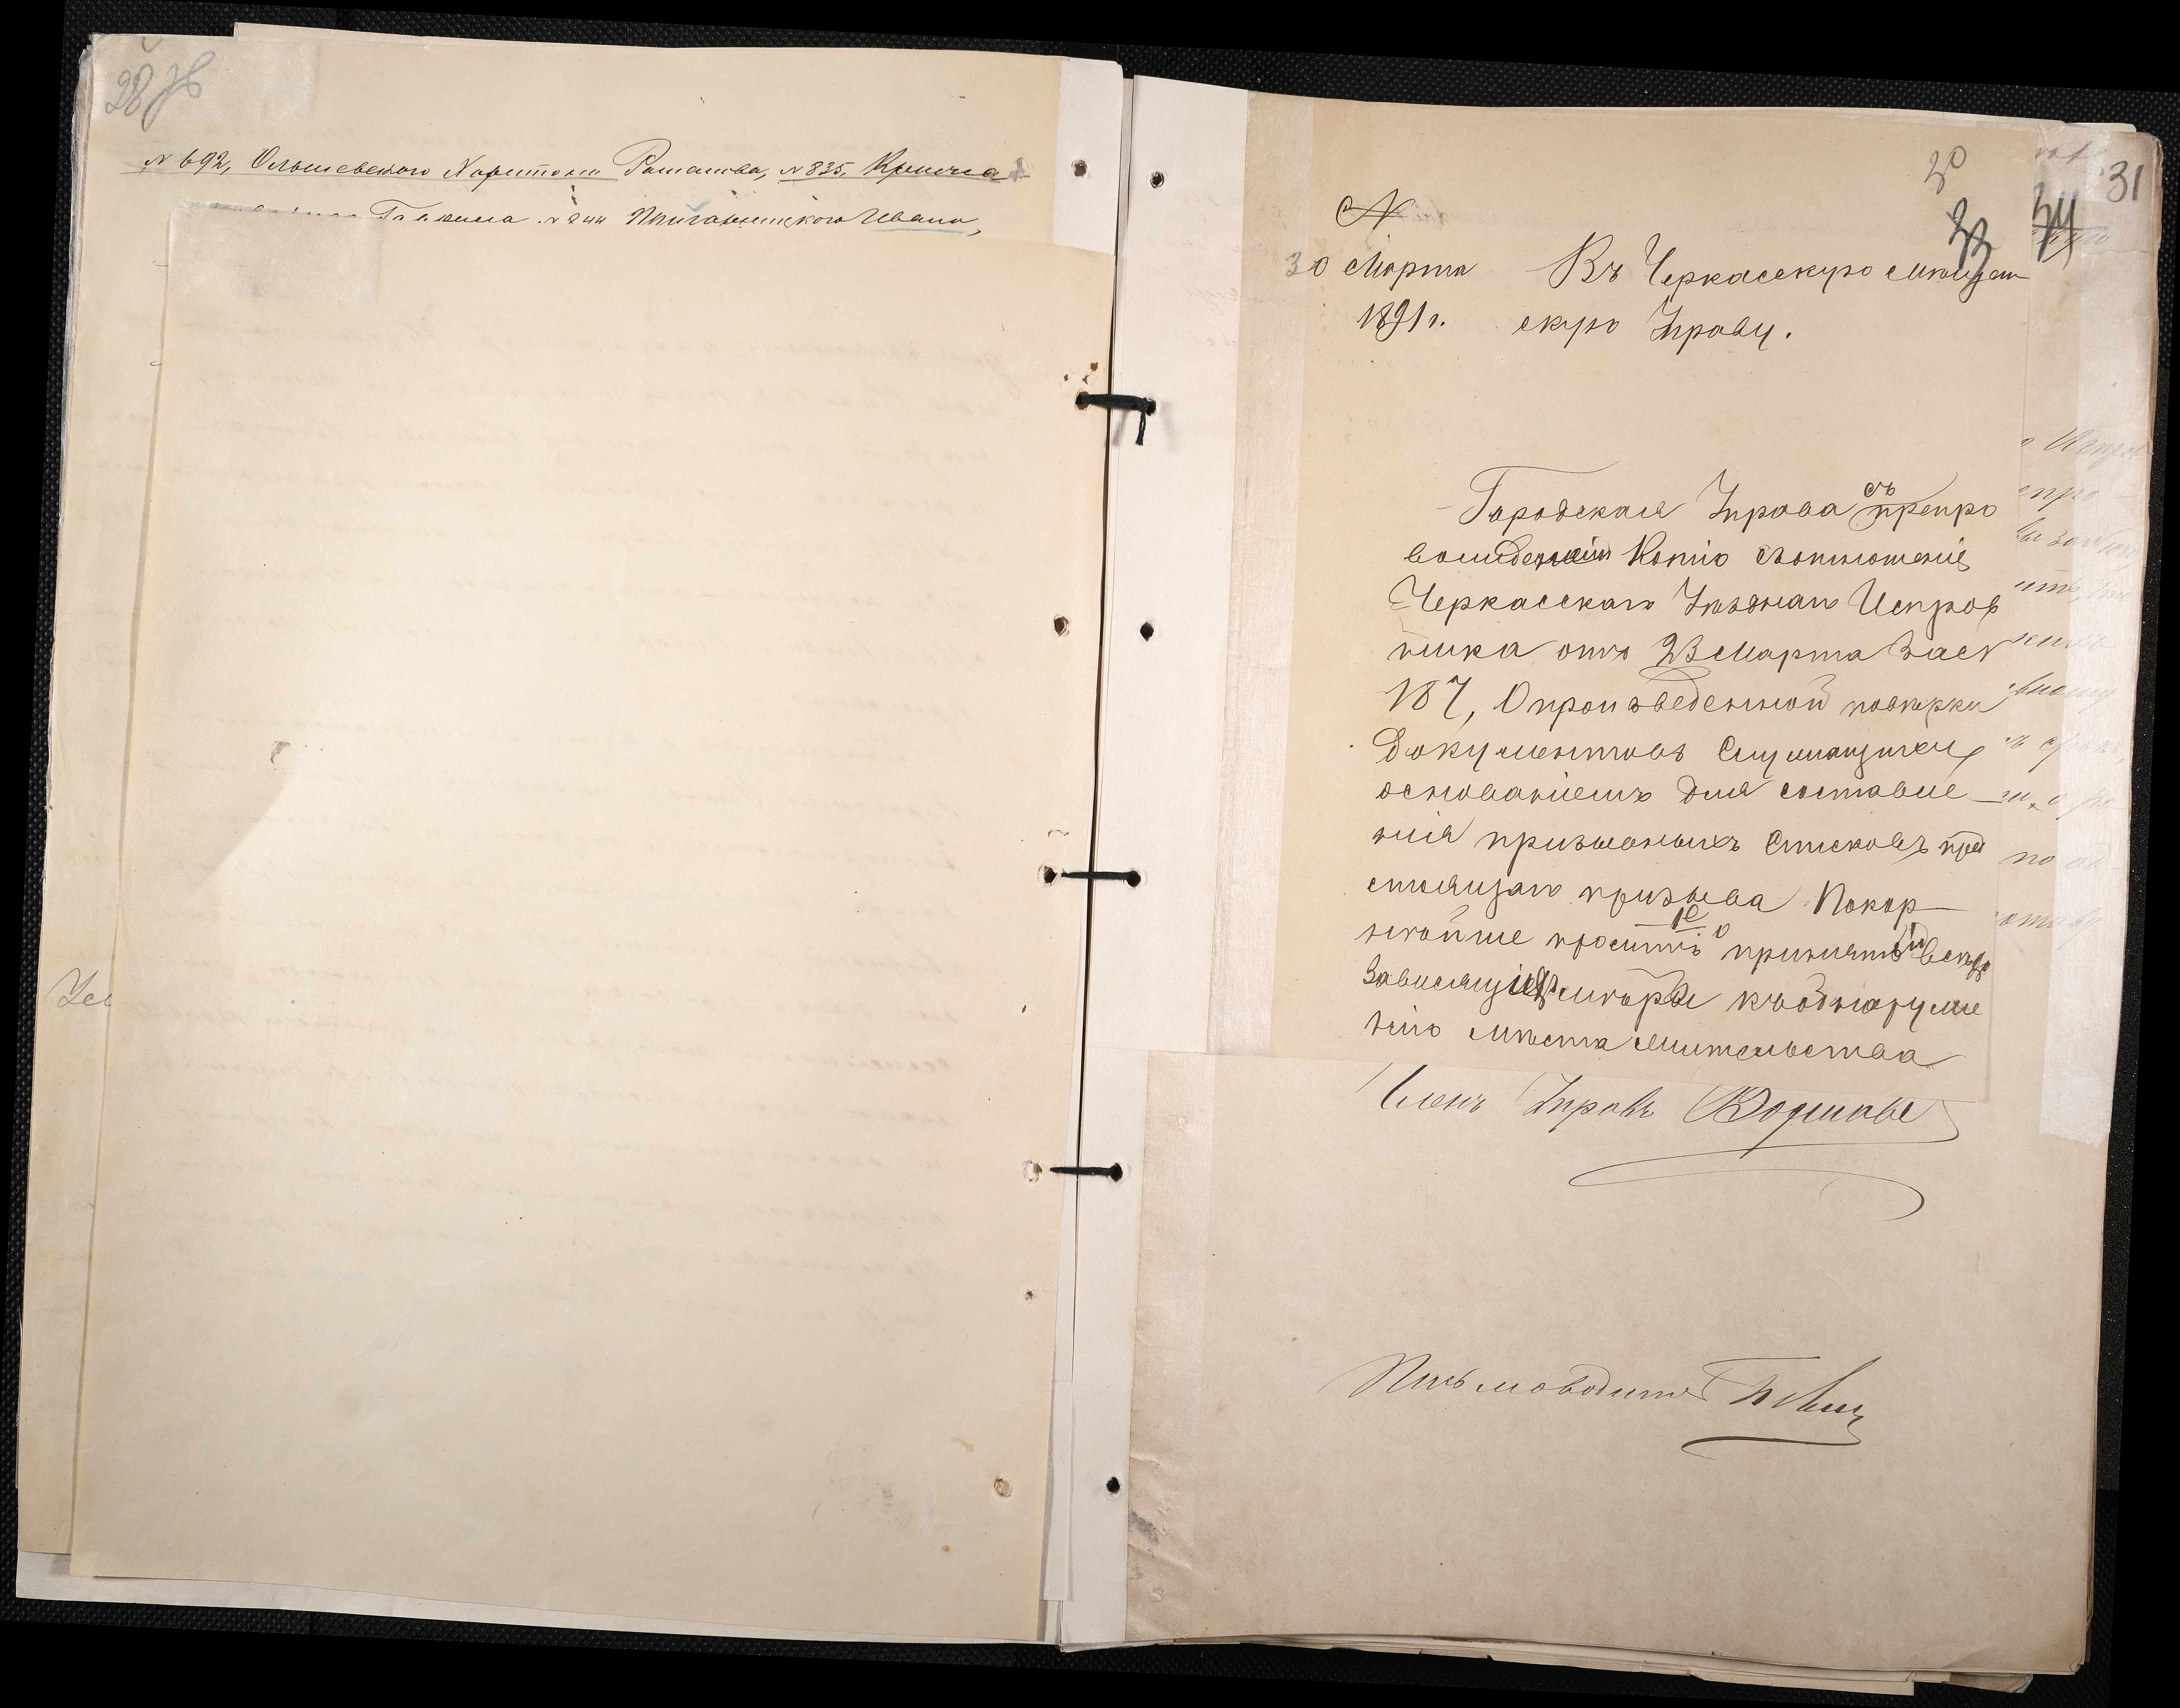 28 зв
№ 692, Ольшевского Харитона Романова, № 835, Крыжча
Ивана,
Ус
30
31
33
34
№
30 Марта
1891 г.
Въ Черкасскую Мѣщан
скую Управу.
Городская Управа съ препро
вожденіем Копію съотношенія
Черкасскаго Уѣзднаго Исправ
ника отъ 23 Марта за №
187, О произведенной повѣрки
документовъ Служащихъ
основаніемъ для составле
нія призывныхъ Списковъ пред
стоящаго призыва Покор
нѣйше проситъ принять
Зависящія мѣры къ обнаруже
нію мѣста жительства
Членъ Управы
Письмоводитель